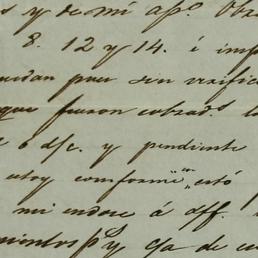 s y de mi apo. Obra
E. 12 y 14. i imp
quedan pues sin verific
que fueron cobrads. l
e 6 d/c. y pendiente
estoy comforme en esto
mi endose á dff.
mientos p y c/a de cu